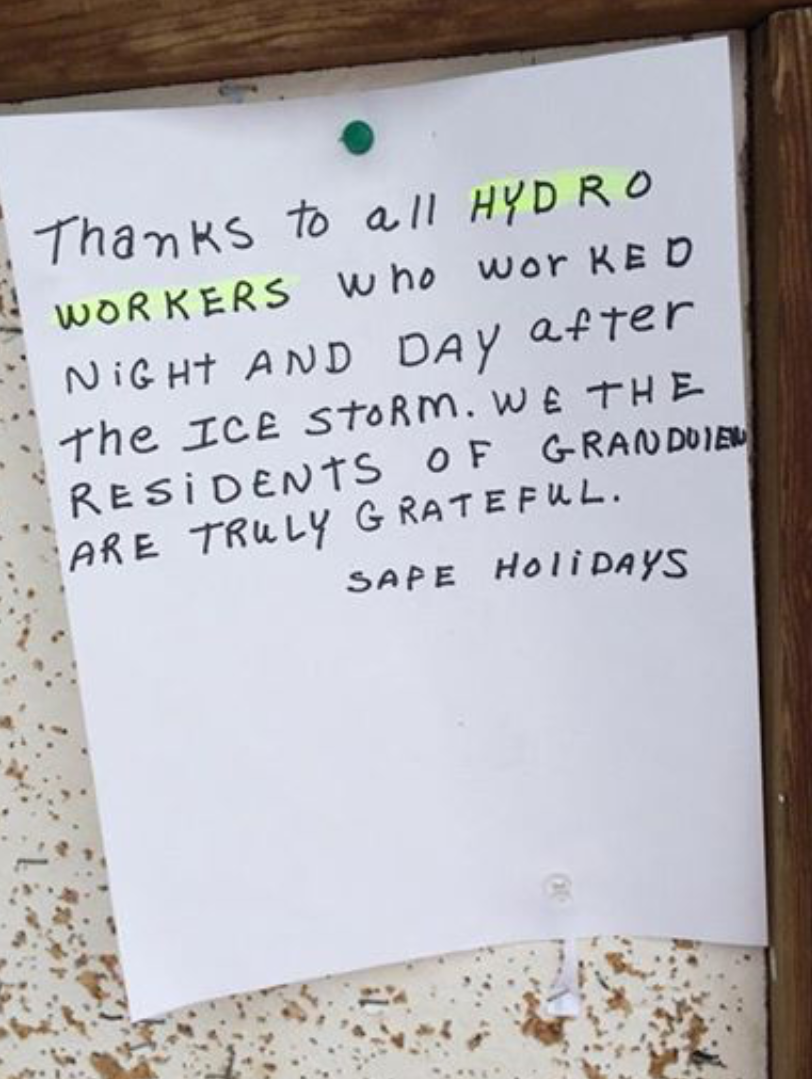 Thanks to all HYDRO
WORKERS who worKED
NiGHt AND DAY after
the ICE STORM. WE THE
RESiDENTS OF GRANDVIEW
ARE TRULY GRATEFUL.
SAFE HoliDAYS